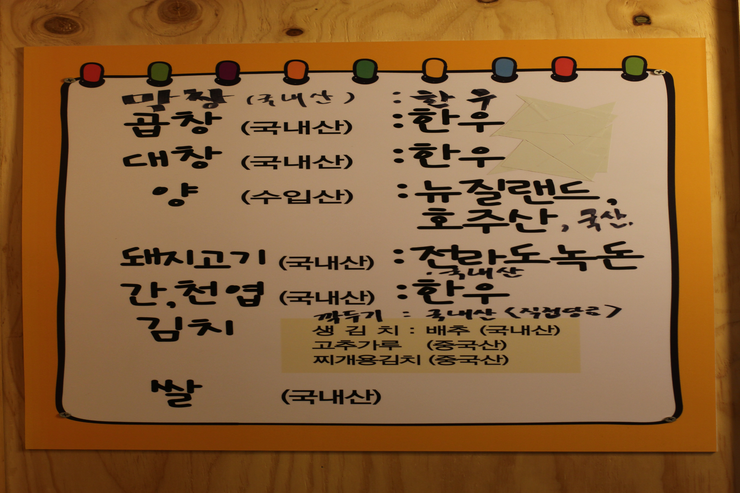 막창 (국내산) : 한우
곱창 (국내산) : 한우
대창 (국내산) : 한우
양 (수입산) : 뉴질랜드,
호주산, 국산.
돼지고기 (국내산) : 전라도녹돈
·국내산
간,천엽 (국내산) : 한우
깍두기 : 국내산 (직접담금)
김치 생김치 : 배추 (국내산)
고추가루 (중국산)
찌개용김치 (중국산)
쌀 (국내산)